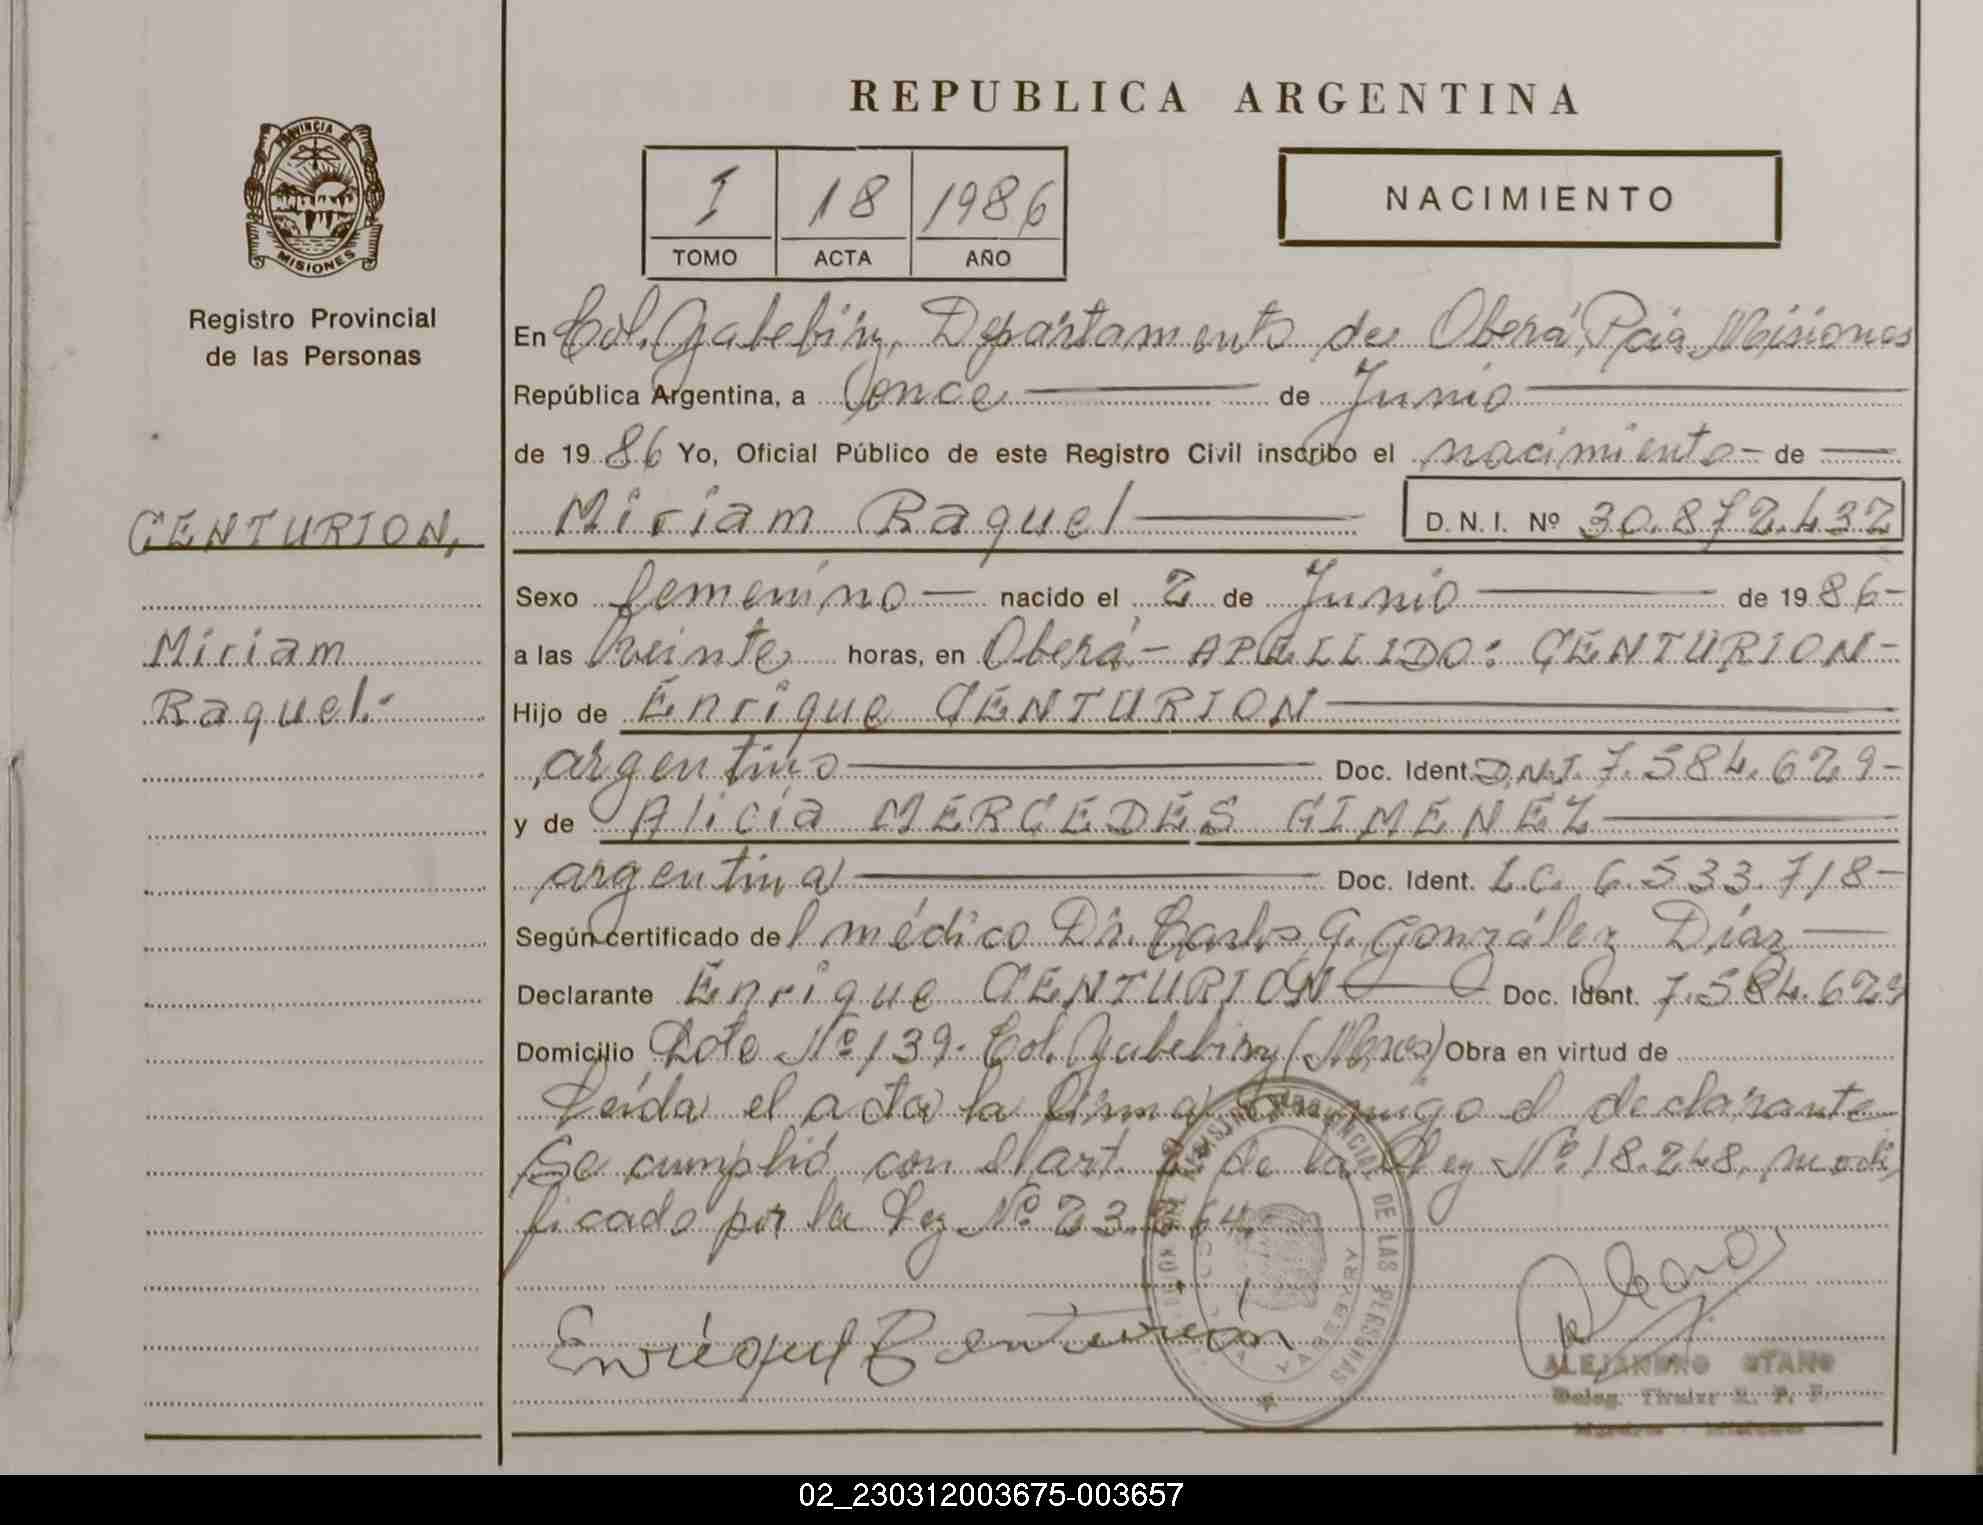 REPUBLICA ARGENTINA
PROVINCIA DE
MISIONES
Registro Provincial
de las Personas
I 18 1986
TOMO ACTA AÑO
NACIMIENTO
En Col. Yabebiry, Departamento de Oberá, Pcia. Misiones
República Argentina, a once de Junio
de 1986 Yo, Oficial Público de este Registro Civil inscribo el nacimiento - de
Miriam Raquel D.N.I. Nº 30.872.432
CENTURION,
Miriam
Raquel.-
Sexo femenino nacido el 2 de Junio de 1986-
a las veinte horas, en Oberá - APELLIDO: CENTURION-
Hijo de Enrique CENTURION
argentino Doc. Ident. D.N.I. 7.584.629-
y de Alicia MERCEDES GIMENEZ
argentina Doc. Ident. L.C. 6.533.718-
Según certificado del médico Dr. Carlos G. González Díaz
Declarante Enrique CENTURION Doc. Ident. 7.584.629
Domicilio Lote Nº 139- Col. Yabebiry (Mnes) Obra en virtud de
Leída el acta la firma conmigo el declarante
Se cumplió con el art. de la Ley Nº 18.248, modi
ficado por la Ley Nº 23.264.
REGISTRO PROVINCIAL DE LAS PERSONAS
Enrique Centurión
ALEJANDRO OTAÑO
Deleg. Titular R. P. P.
Misiones
02_230312003675-003657